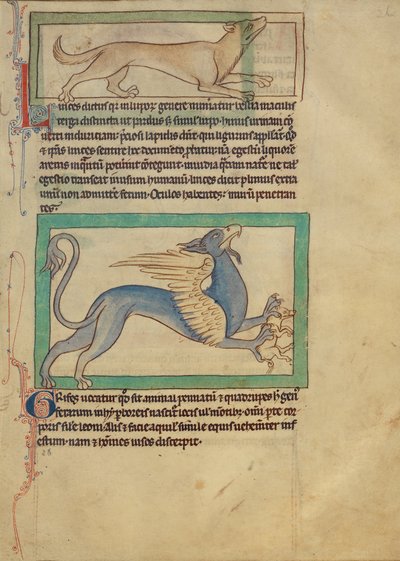 Linces dictus qr in luporum genere numeratur bestia maculis
terga distincta ut pardus s; similis lupo. huius urinam con
verti in duriciam preciosi lapidis dicunt qui ligurius appellatur. qd
& ipsas linces sentire hoc documento probatur. nam egestum liquorem
arenis in quantum potuerint contegunt. inuidia quadam nature ne talis
egestio transeat in usum humanum. linces dicit plinius extra
unum non admittere fetum. Oculos habentes mirum penetran
tes.
Grifes uocatur qd sit animal pennatum & quadrupes. hoc genus
ferarum in hyperboreis nascitur locis uel montibus. omni parte cor
poris simile leoni. Alis & facie aquile simile equis uehementer inf
estum. nam & homines uisos discerpit.